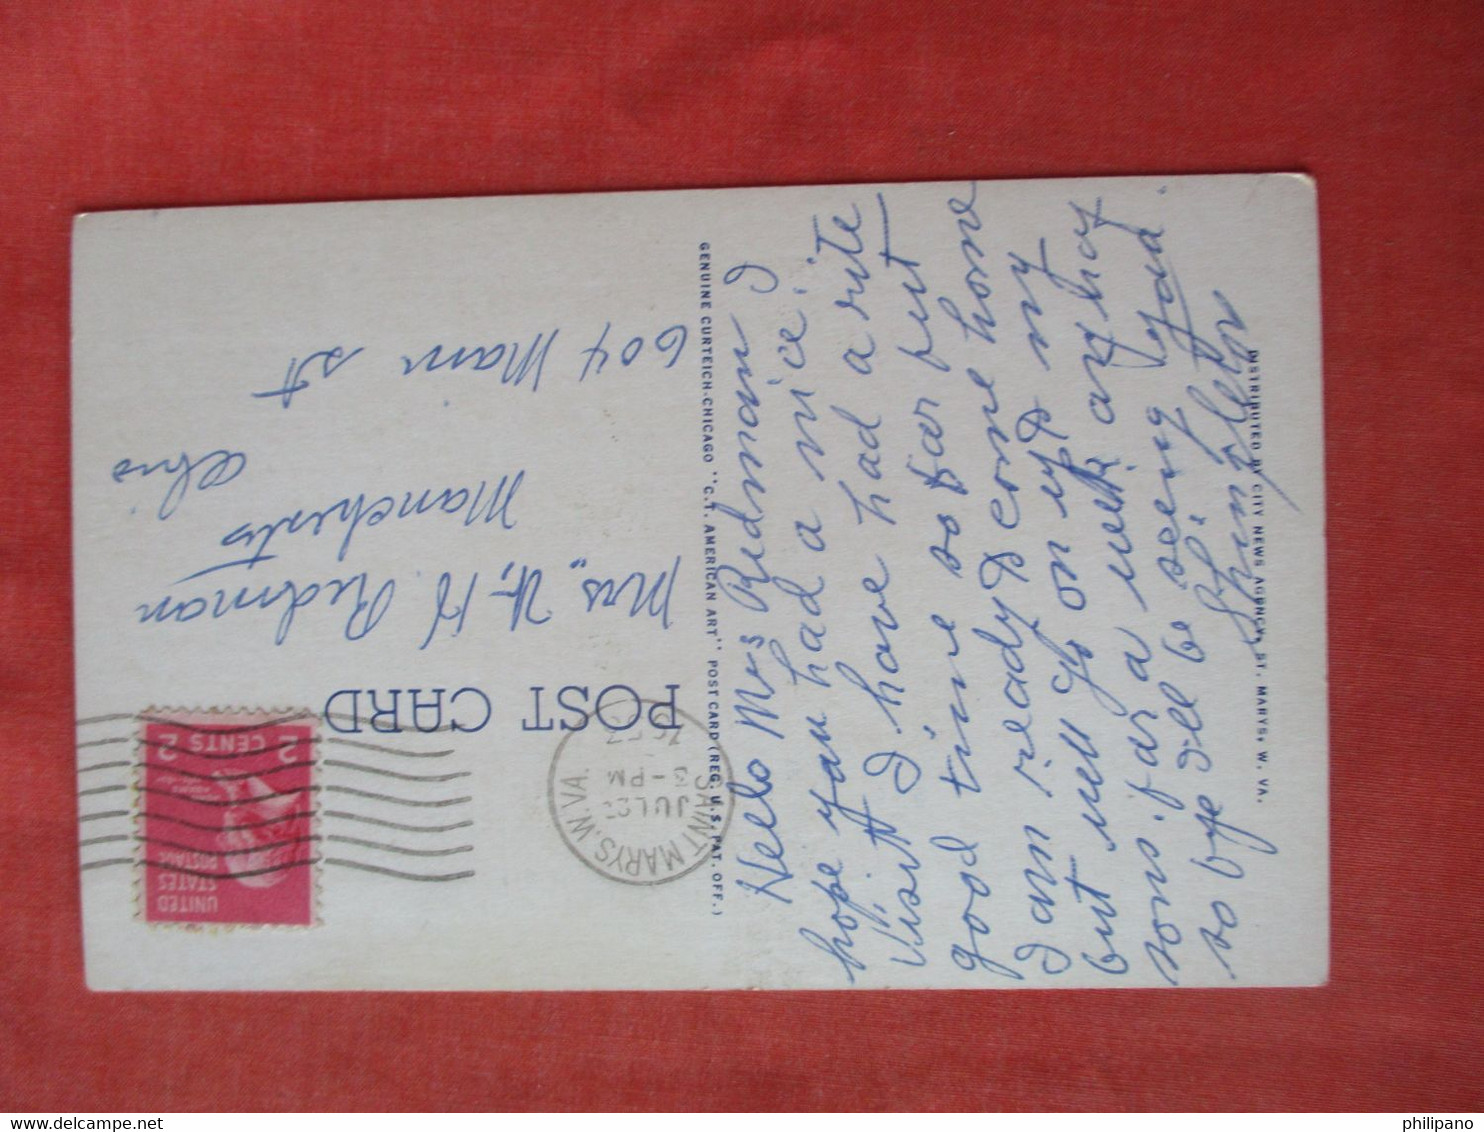 Hello Mrs Redman I
hope you had a nice
Visit I have had a rite
good time so far but
I am ready to come home
but will go on up to my
sons for a week any how
so bye ill be seeing you.
POST CARD
Mrs., W, H Redman
604 Main st
Manchester
Ohio
SAINT MARYS, W.VA.
JUL
3-PM
UNITED
STATES
POSTAGE
2 CENTS 2
GENUINE CURTEICH-CHICAGO "C.T. AMERICAN ART" POST CARD (REG. U.S. PAT. OFF.)
DISTRIBUTED BY CITY NEWS AGENCY, ST. MARYS, W. VA.
philipano